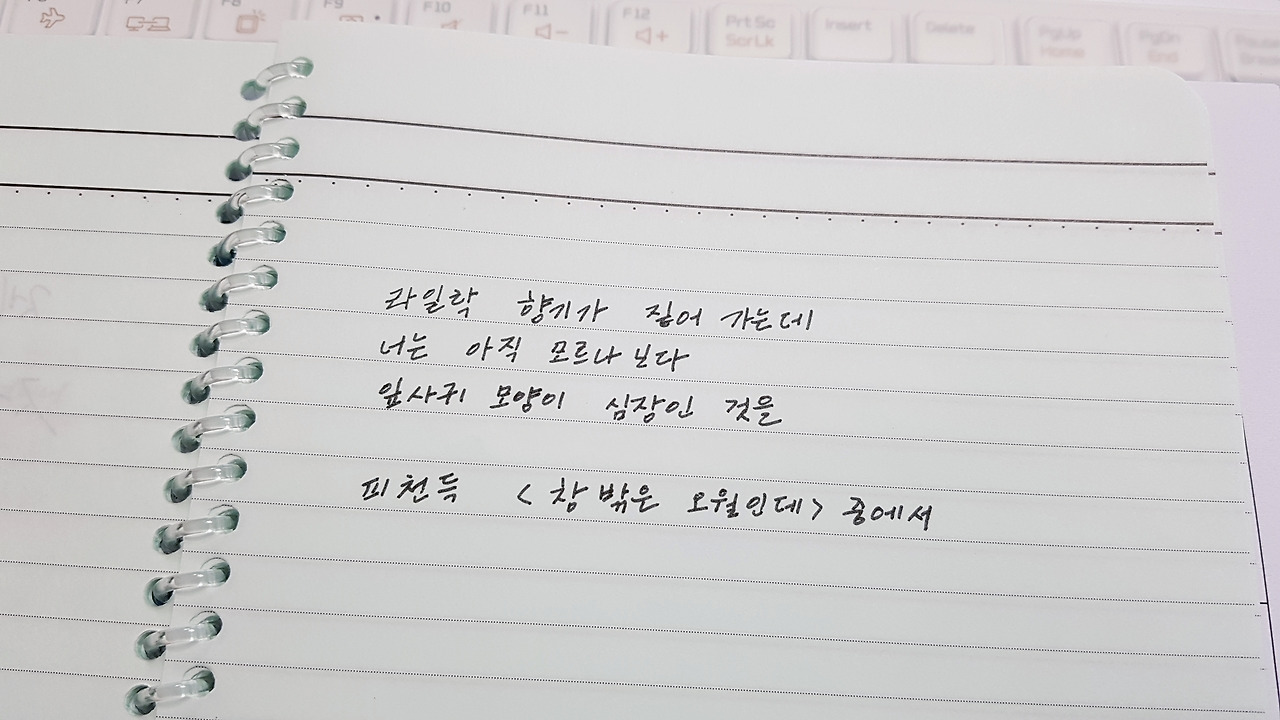 F8
F9
F10
F11
F12
PrtSc
ScrLk
Insert
Delete
PgUp
Home
PgDn
End
라일락 향기가 짙어 가는데
너는 아직 모르나 보다
잎사귀 모양이 심장인 것을
피천득 <창 밖은 오월인데> 중에서